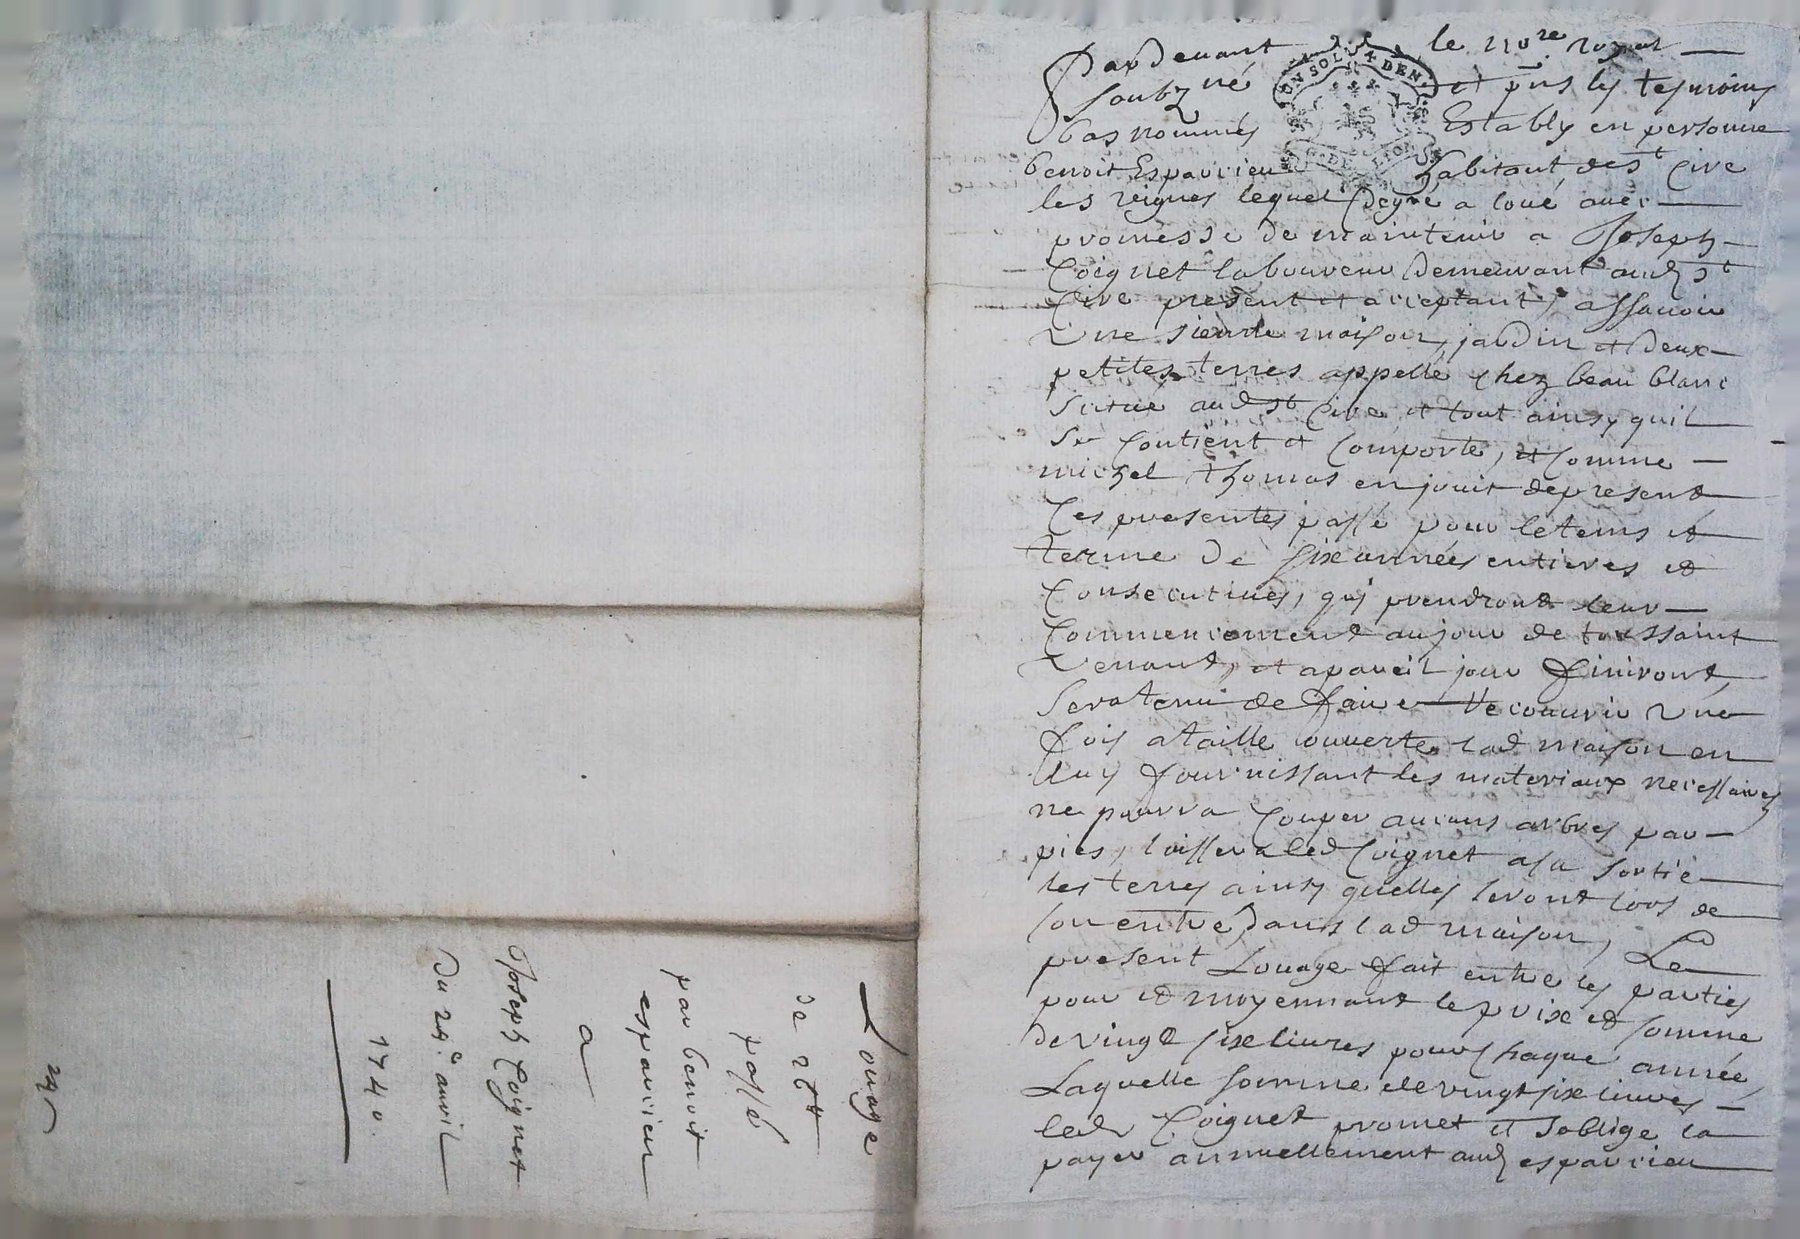 Pardevant le no.re royal
soubzné et pns les tesmoins
bas nommés Estably en personne
benoit Esparcieu habitant de St Cire
les vignes lequel degré a loué avec
promesse de maintenir a Joseph
Coignet laboureur demeurant aud St
Cire present et acceptant, assavoir
Une sienne maison, jardin et deux
petites terres appellé chez beau blanc
scitué aud St Cire et tout ainsy quil
se contient et comporte, et comme
michel thomas en jouit de present
Ces presentes passé pour le tems et
terme de six années entieres et
Consecutives, qui prendront leur
Commencement au jour de toussaint
Venant, et a pareil jour finiront,
Sera tenu de faire recouvrir Une
fois a taille ouverte lad maison en
luy fournissant les materiaux necessaires
ne pourra Couper aucuns arbres par
pies, laissera led Coignet a sa sortie
les terres ainsy quelles seront lors de
son entré dans lad maison, Le
present Louage fait entre les parties
pour et moyennant le prix et somme
de vingt six livres pour chaque année,
Laquelle somme de vingt six livres
led Coignet promet et soblige la
payer annuellement aud esparcieu
ON SOL 4 DEN.
G. DE LION
Louage
de 26tt
passé
par benoit
esparcieu
a
Joseph Coignet
Du 29.e avril
1740.